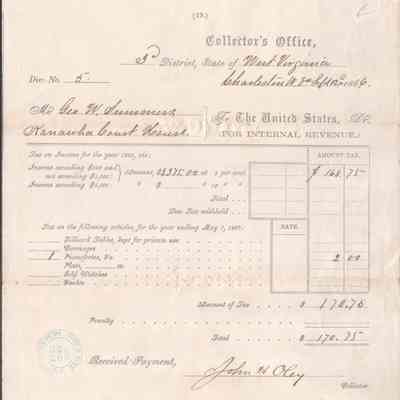 (19.)
Collector's Office,
3d District, State of West Virginia
Div. No. 5. Charleston W. Va Sept 12 186
Mr Geo. W. Summers, To The United States, Dr.
Kanawha Court House. (FOR INTERNAL REVENUE.)
Tax on Income for the year 1866, viz: AMOUNT TAX.
Income exceeding $600 and not exceeding $5,000: Amount, $3375.00 at 5 per cent $ 168 75
Income exceeding $5,000: $ @ 10
Total
Due Tax withheld
Tax on the following articles for the year ending May 1, 1867: RATE.
Billiard Tables, kept for private use
Carriages
1 Pianofortes, &c. 2 00
Plate, oz.
Gold Watches
Yachts
Amount of Tax $ 170.75
Penalty
Total $ 170.75
Received Payment,
John H Oley
Collector.